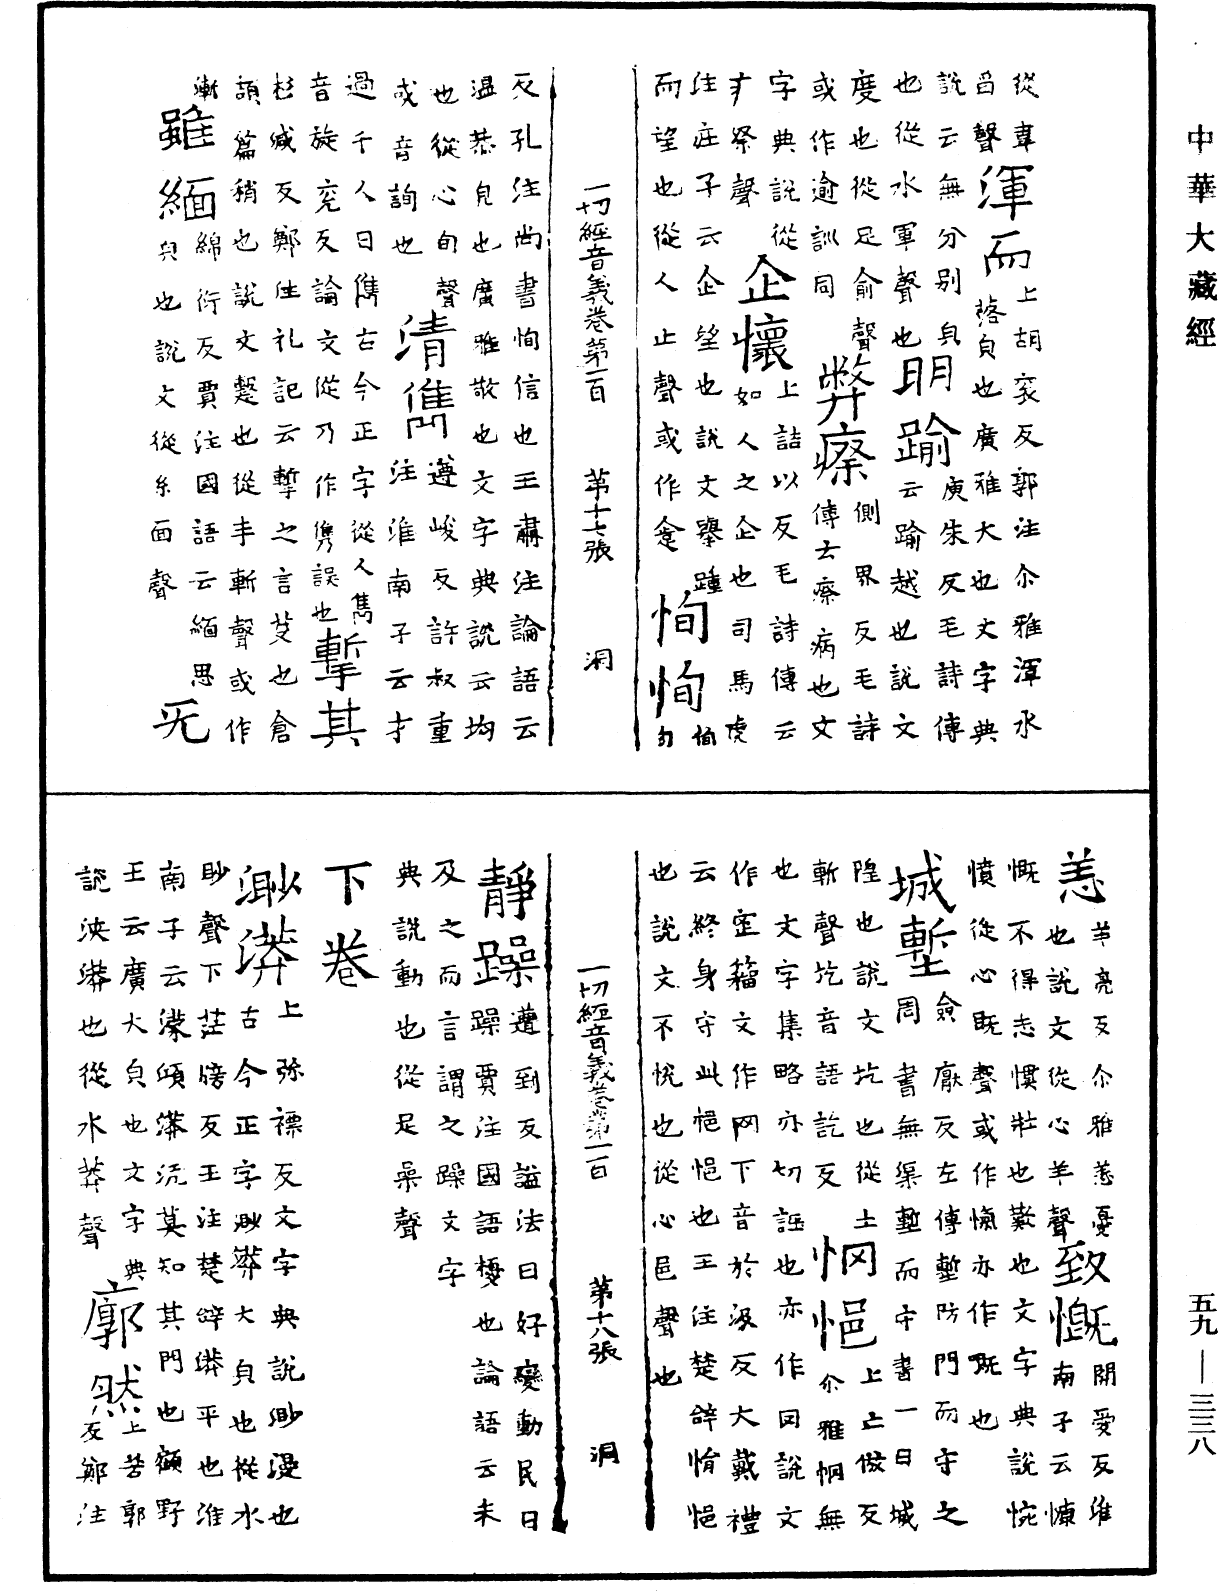 中華大藏經
從韋 渾而 上胡衮反郭注尒雅渾水
舀聲 落皃也廣雅大也文字典
說云無分別皃 明踰 庾朱反毛詩傳
也從水軍聲也 云踰越也說文
度也從足俞聲 弊瘵 側界反毛詩
或作逾訓同 傳云瘵病也文
字典說從 企懷 上詰以反毛詩傳云
疒祭聲 如人之企也司馬虎
注庄子云企望也說文舉踵 恂恂 恂
而望也從人止聲或作 勻
一切經音義卷第一百 第十七張 洞
反孔注尚書恂信也王肅注論語云
温恭皃也廣雅敬也文字典說云均
也從心旬聲 清儁 遵峻反許叔重
或音詢也 注淮南子云才
過千人曰儁古今正字從人雋
音旋兖反論文從乃作隽誤也 摲其
杉緘反鄭注礼記云摲之言芟也倉
頡篇稍也說文蹔也從手斬聲或作
漸 雖緬 綿衍反賈注國語云緬思
皃也說文從糸面聲 旡
恙 羊亮反尒雅恙憂 致慨 開愛反淮
也說文從心羊聲 南子云慷
慨不得志慣壯也歎也文字典說惋
憤從心既聲或作愾亦作嘅也
城塹 僉厭反左傳塹防門而守之
周書無渠塹而守書一曰城
隍也說文坑也從土 惘悒 上亡倣反
斬聲坑音語訖反 尒雅惘無
也文字集略亦切誣也亦作罔說文
作 籀文作网下音於汲反大戴禮
云終身守此悒悒也王注楚辝悁悒
也說文不悦也從心邑聲也
一切經音義卷第一百 第十八張 洞
靜躁 遭到反謚法曰好變動民曰
躁賈注國語擾也論語云未
及之而言謂之躁文字
典說動也從足喿聲
下卷
渺漭 上弥褾反文字典說渺漫也
古今正字渺漭大皃也從水
眇聲下茫牓反王注楚辝漭平也淮
南子云濛澒漭沆莫知其門也顧野
王云廣大皃也文字典 廓然 上苦郭
說泱漭也從水莽聲 反鄭注
五九—三三八